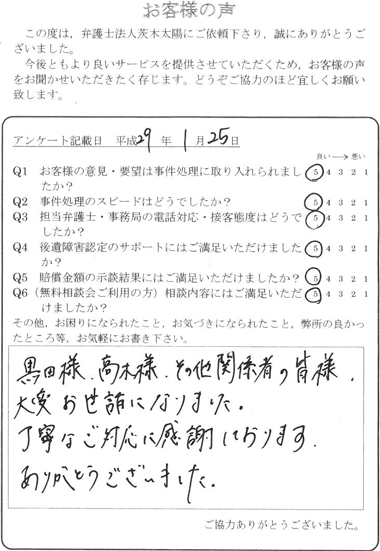 お客様の声
この度は，弁護士法人茨木太陽にご依頼下さり，誠にありがとうご
ざいました。
今後ともより良いサービスを提供させていただくため，お客様の声
をお聞かせいただきたく存じます。どうぞご協力のほど宜しくお願い
致します。
アンケート記載日 平成29年1月25日
良い ──→ 悪い
Q1 お客様の意見・要望は事件処理に取り入れられまし 5 4 3 2 1
たか？
Q2 事件処理のスピードはどうでしたか？ 5 4 3 2 1
Q3 担当弁護士・事務局の電話対応・接客態度はどうで 5 4 3 2 1
したか？
Q4 後遺障害認定のサポートにはご満足いただけました 5 4 3 2 1
か？
Q5 賠償金額の示談結果にはご満足いただけましたか？ 5 4 3 2 1
Q6（無料相談会ご利用の方）相談内容にはご満足いただ 5 4 3 2 1
けましたか？
その他，お困りになられたこと，お気づきになられたこと，弊所の良かっ
たところ等，お気軽にお書き下さい。
黒田様、高木様、その他関係者の皆様、
大変お世話になりました。
丁寧なご対応に感謝しております。
ありがとうございました。
ご協力ありがとうございました。